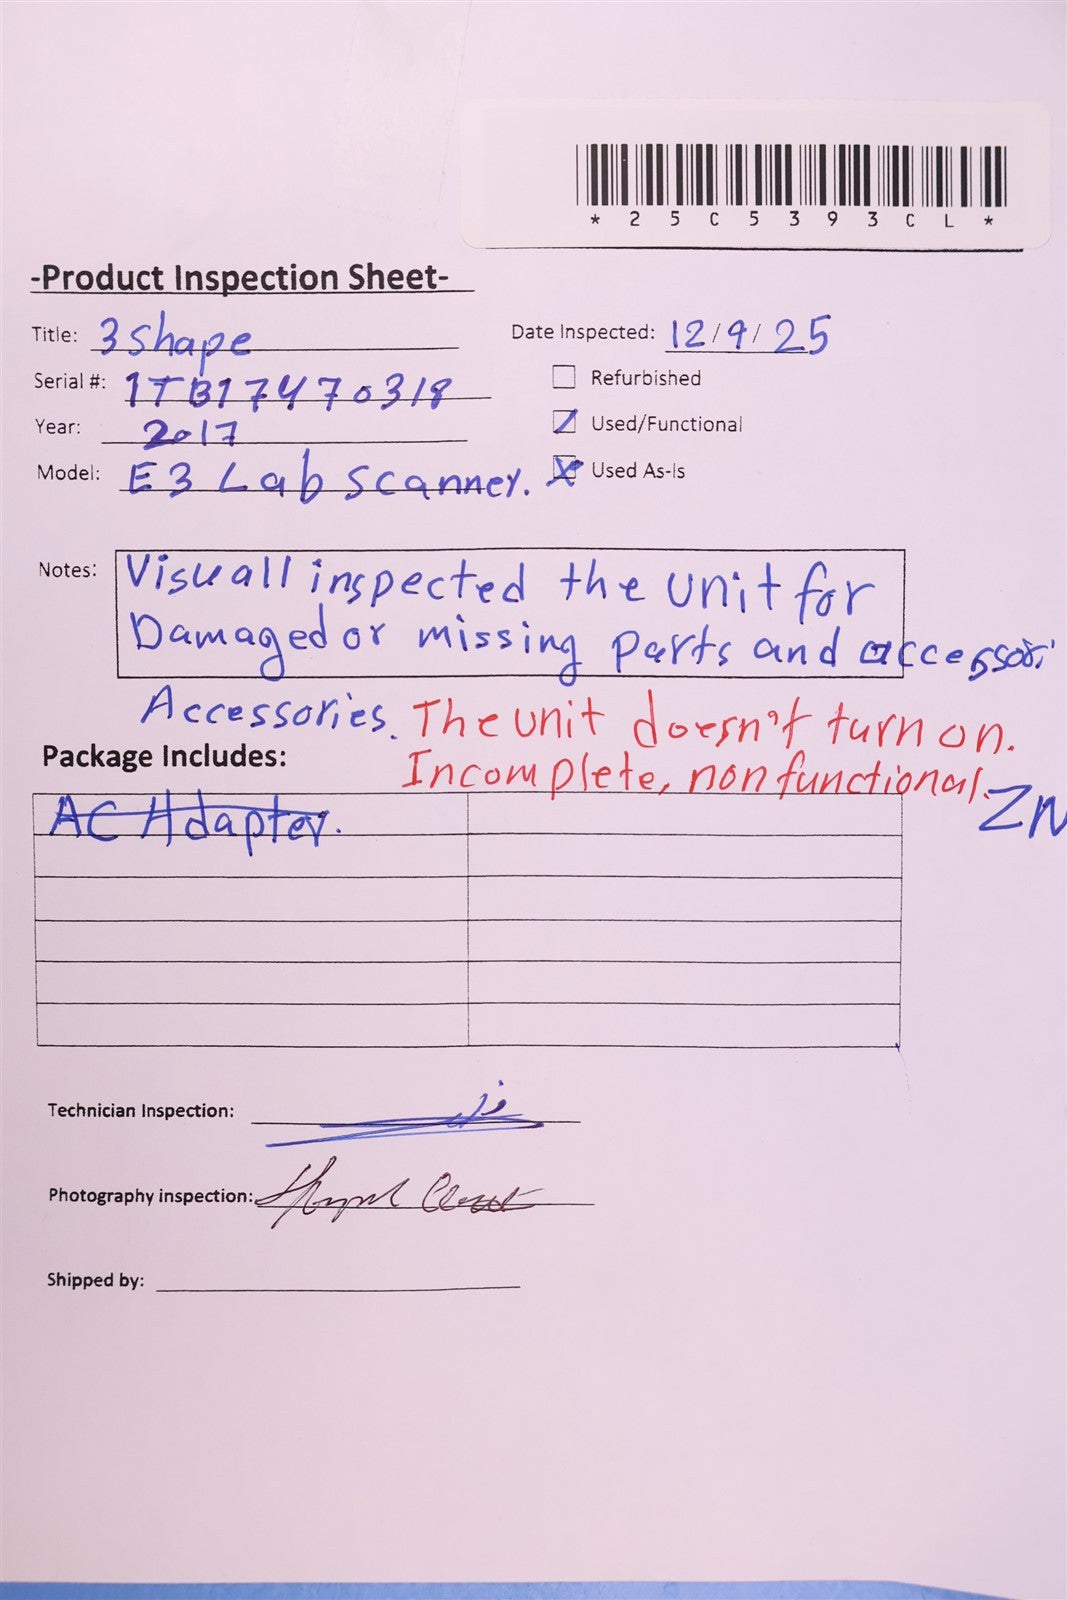 *25C5393CL*
-Product Inspection Sheet-
Title: 3shape
Date Inspected: 12/9/25
Serial #: 1TB17470318
Refurbished
Year: 2017
Used/Functional
Model: E3 Lab scanner.
Used As-Is
Notes: Visuall inspected the unit for
Damaged or missing parts and accessori
Accessories. The unit doesn't turn on.
Package Includes:
Incomplete, non functional.
AC Adapter.
ZN
Technician Inspection:
Photography inspection:
Shipped by: